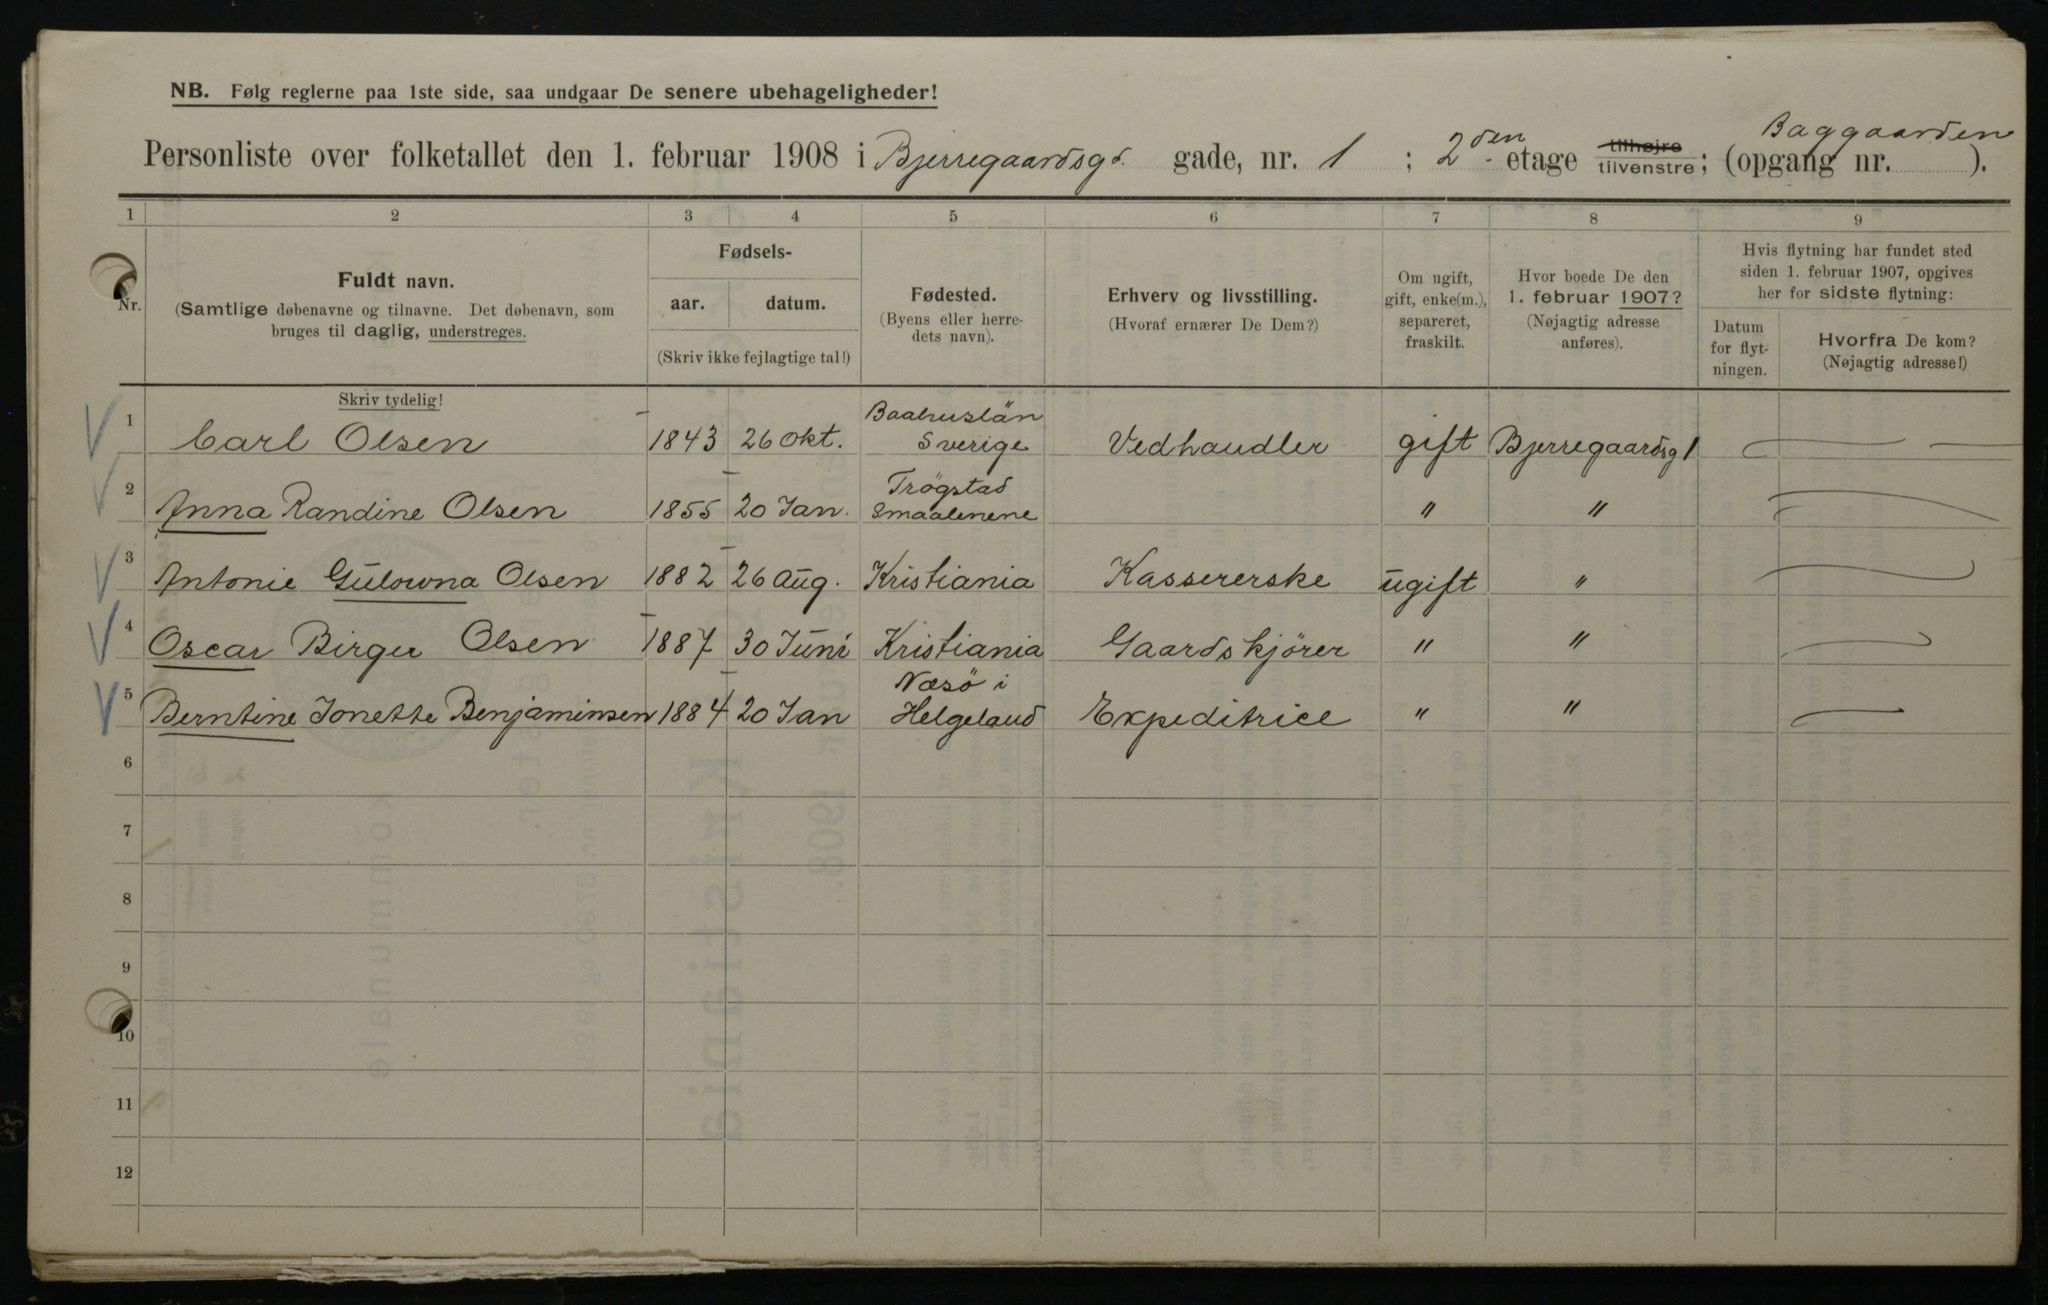 NB. Følg reglerne paa 1ste side, saa undgaar De senere ubehageligheder!
Baggaarden
Personliste over folketallet den 1. februar 1908 i Bjerregaardsgd. gade, nr. 1 ; 2den etage tilhøjre tilvenstre; (opgang nr. ).
1 2 3 4 5 6 7 8 9
Nr.
Fuldt navn.
(Samtlige døbenavne og tilnavne. Det døbenavn, som
bruges til daglig, understreges.
Fødsels-
aar. datum.
(Skriv ikke fejlagtige tal!)
Fødested.
(Byens eller herre-
dets navn).
Erhverv og livsstilling.
(Hvoraf ernærer De Dem?)
Om ugift,
gift, enke(m.),
separeret,
fraskilt.
Hvor boede De den
1. februar 1907?
(Nøjagtig adresse
anføres).
Hvis flytning har fundet sted
siden 1. februar 1907, opgives
her for sidste flytning:
Datum
for flyt-
ningen.
Hvorfra De kom?
(Nøjagtig adresse!)
Skriv tydelig!
Baahuslän
1 Carl Olsen 1843 26 Okt. Sverige Vedhandler gift Bjerregaardsg 1
Trøgstad
2 Anna Randine Olsen 1855 20 Jan. Smaalenene " "
3 Antonie Gülowna Olsen 1882 26 Aug. Kristiania Kassererske ugift "
4 Oscar Birger Olsen 1887 30 Juni Kristiania Gaardskjörer " "
Næsö i
5 Berntine Jonette Benjaminsen 1884 20 Jan Helgeland Expeditrice " "
6
7
8
9
10
11
12